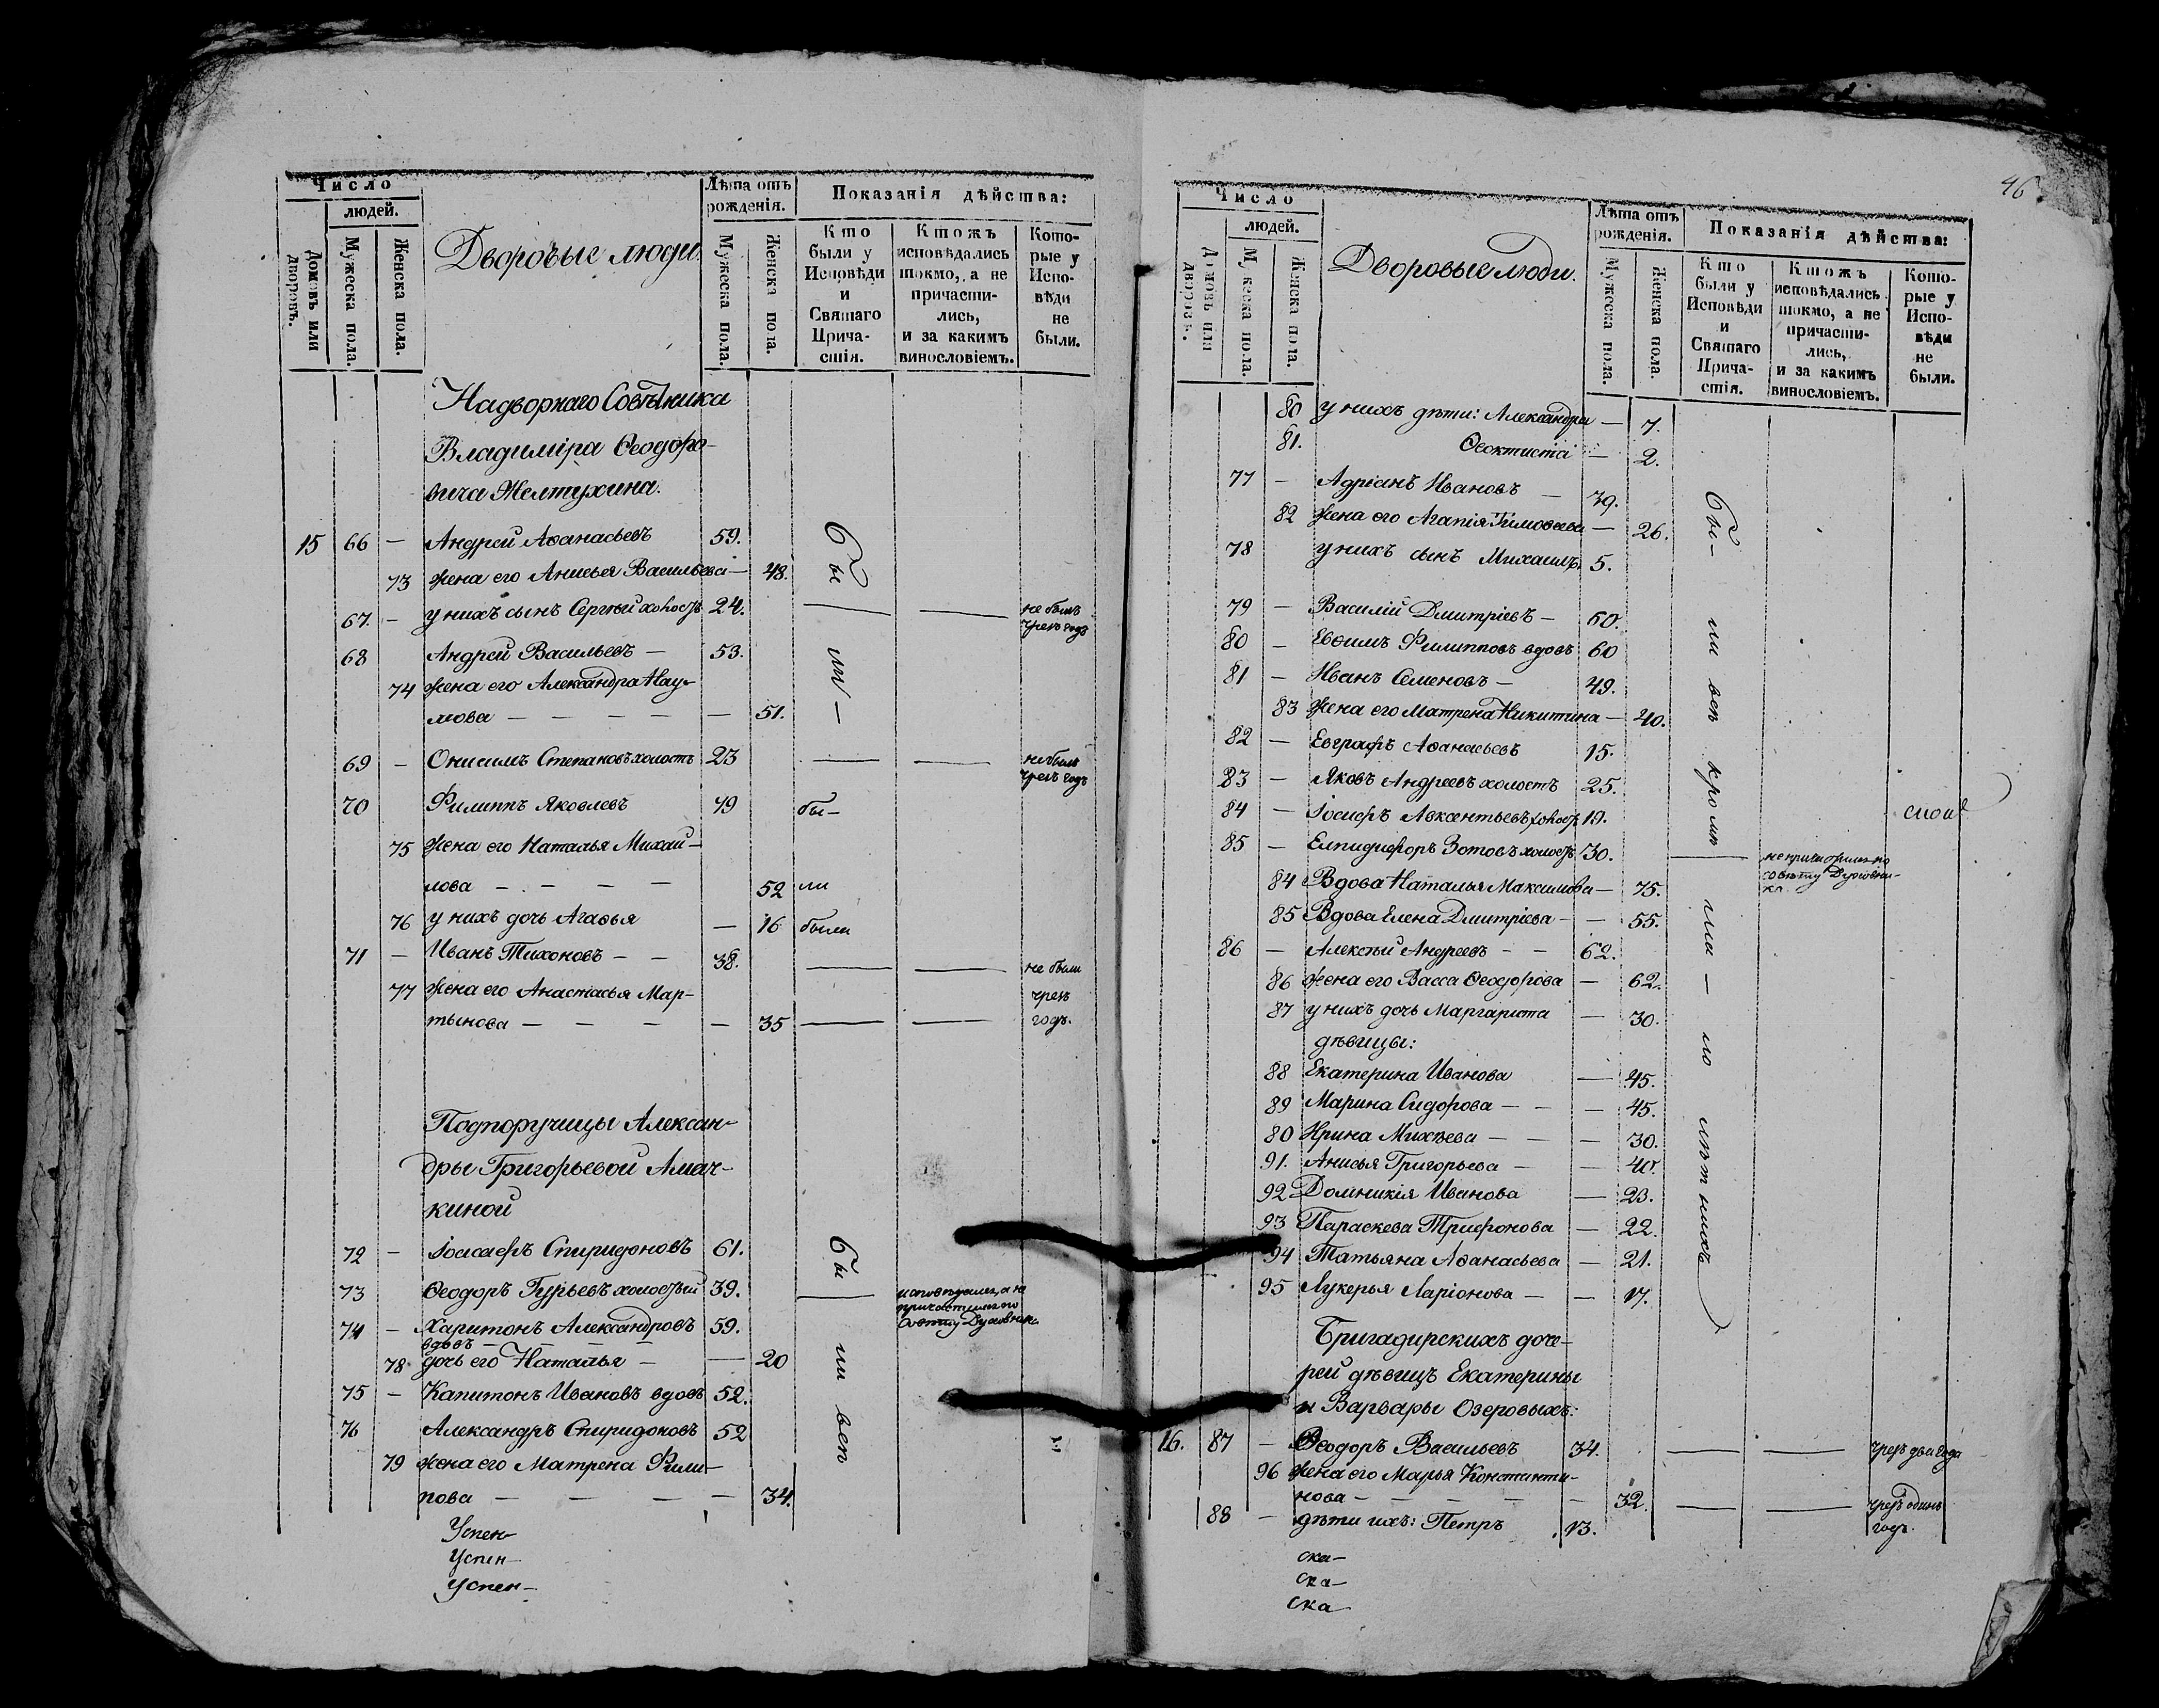 Число
людей.
Домовъ или дворовъ.
Мужеска пола.
Женска пола.
Дворовые люди.
Лѣта отъ рожденія.
Мужеска пола.
Женска пола.
Показанія дѣйства:
Кто были у Исповѣди и Святаго Причастія.
Ктожъ исповѣдались токмо, а не причастились, и за какимъ винословіемъ.
Которые у Исповѣди не были.
Надворнаго Совѣтника
Владиміра Ѳеодоро-
вича Желтухина.
15 66 — Андрей Аѳанасьевъ 59.
73 жена его Анисья Васильева — 48.
67. — у нихъ сынъ Сергѣй холостъ 24. — — не былъ чрезъ годъ
68 Андрей Васильевъ — 53.
74 жена его Александра Нау-
мова — — — — — 51.
бы ли —
69 — Онисимъ Степановъ холостъ 23 — — не былъ чрезъ годъ
70 Филиппъ Яковлевъ 49 бы-
75 жена его Наталья Михай-
лова — — — — 52 ли
76 у нихъ дочь Агаѳья — 16 были
71 — Иванъ Тихоновъ — — 38. — — не были
77 жена его Анастасья Мар- чрезъ
тынова — — — — 35 — — годъ.
Подпоручицы Алексан-
дры Григорьевой Амач-
киной
72 — Іоасафъ Спиридоновъ 61.
73 Ѳеодоръ Гурьевъ холостый 39. — исповѣдался, а не причастился по совѣту Духовника
74 — Харитонъ Александровъ 59.
вдовъ — — — —
78. дочь его Наталья — — 20
75 — Капитонъ Ивановъ вдовъ 52.
76 Александръ Спиридоновъ 52
79 жена его Матрена Фили-
пова — — — — 34.
бы ли всѣ
Успен-
Успен-
Успен-
46
Число
людей.
Домовъ или дворовъ.
Мужеска пола.
Женска пола.
Дворовые люди.
Лѣта отъ рожденія.
Мужеска пола.
Женска пола.
Показанія дѣйства:
Кто были у Исповѣди и Святаго Причастія.
Ктожъ исповѣдались токмо, а не причастились, и за какимъ винословіемъ.
Которые у Исповѣди не были.
80 у нихъ дѣти: Александра — 7.
81. Ѳеоктиста — 2.
77 — Адріанъ Ивановъ — 39.
82 жена его Агапія Тимоѳеева — 26.
78 у нихъ сынъ Михаилъ 5.
79 — Василій Дмитріевъ — 60.
80 — Евѳимъ Филипповъ вдовъ 60
81 — Иванъ Семеновъ — 49.
83 жена его Матрена Никитина — 40.
82 — Евграфъ Аѳанасьевъ 15.
83 — Яковъ Андреевъ холостъ 25.
84 — Іосифъ Авксентьевъ холостъ 19.
85 — Елпидифоръ Зотовъ холостъ 30. — не причастился по совѣту Духовника
84 Вдова Наталья Максимова — 75.
85 Вдова Елена Дмитріева — — 55.
86 — Алексѣй Андреевъ — — 62.
86 жена его Васса Ѳеодорова — 62.
87 у нихъ дочь Маргарита — 30.
дѣвицы:
88 Екатерина Иванова — 45.
89 Марина Сидорова — — — 45.
80 Ирина Михѣева — — — 30.
91. Анисья Григорьева — — 40.
92 Домникія Иванова — 23.
93 Параскева Трифонова — 22.
94 Татьяна Аѳанасьева — 21.
95 Лукерья Ларіонова — — 17.
бы- ли всѣ кромѣ — ло лѣтнихъ
Бригадирскихъ доче-
рей дѣвицъ Екатерины
и Варвары Озеровыхъ:
16. 87 — Ѳеодоръ Васильевъ 34. — — чрезъ два года
96 жена его Марья Константи-
нова — — — — — 32. — — чрезъ одинъ годъ.
88 — дѣти ихъ: Петръ 13.
ска-
ска-
ска